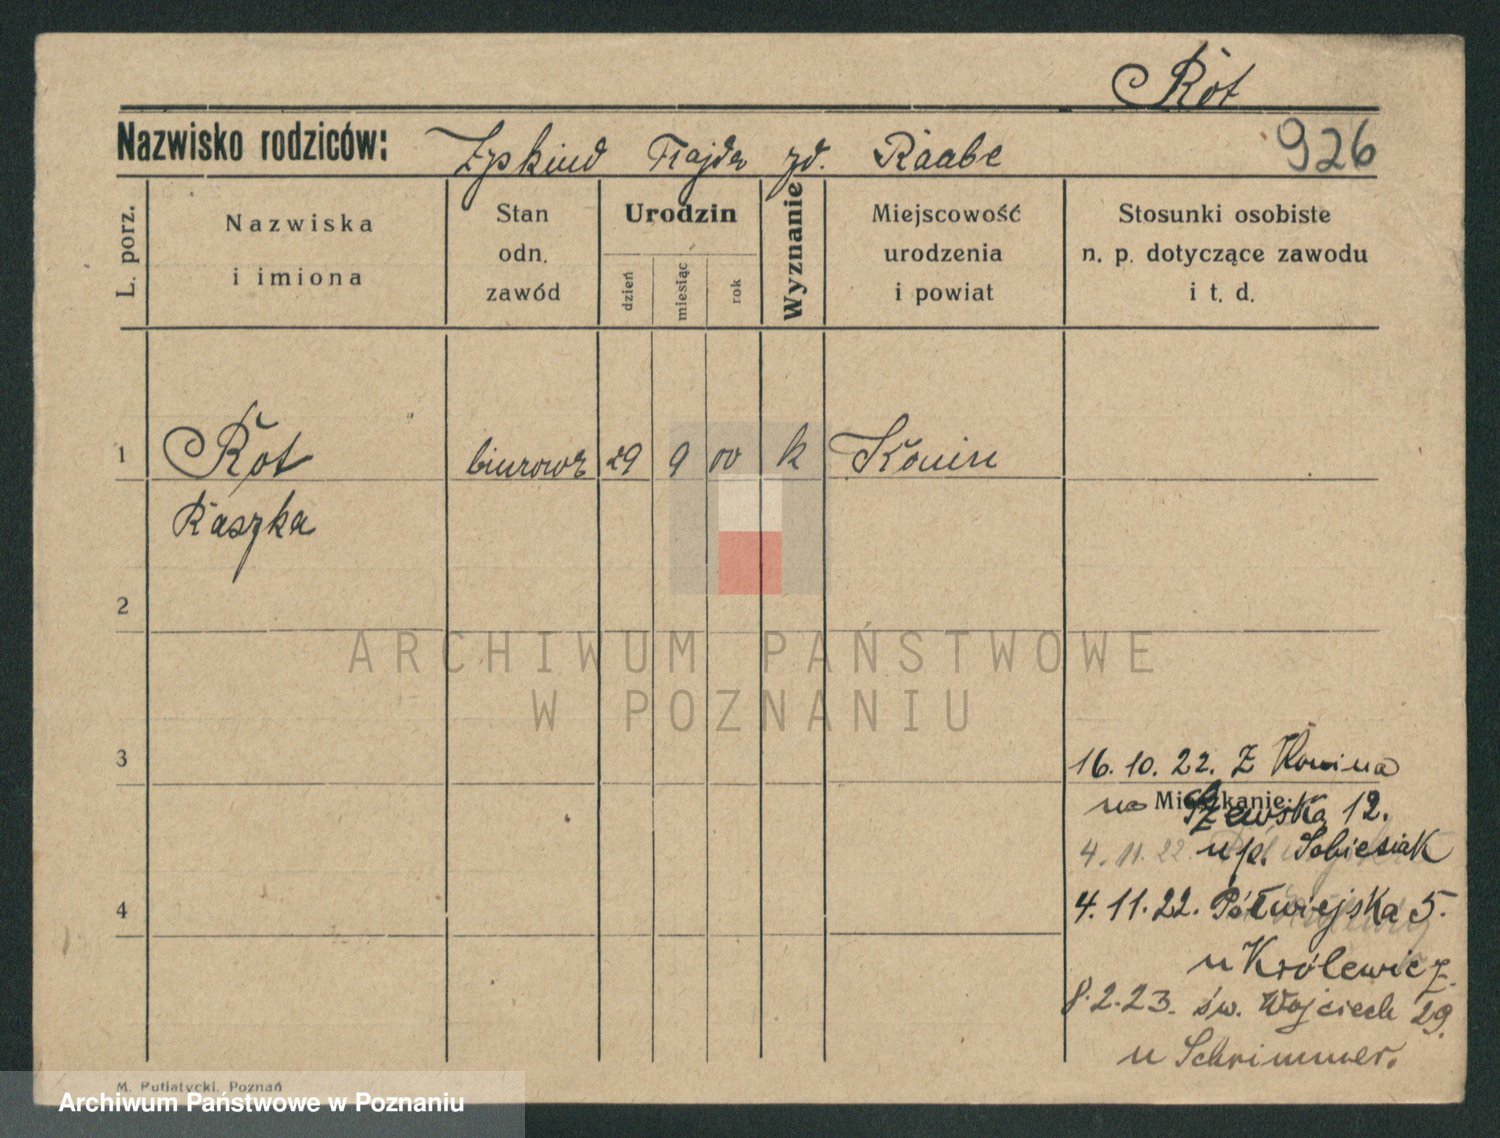 Rot
Nazwisko rodziców: Zyskind Frajda zd. Raabe 926
L. porz.
Nazwiska
i imiona
Stan
odn.
zawód
Urodzin
dzień
miesiąc
rok
Wyznanie
Miejscowość
urodzenia
i powiat
Stosunki osobiste
n. p. dotyczące zawodu
i t. d.
1 Rot biurowa 29 9 00 k Konin
Raszka
2
3
4
16.10.22. Z Konina
na Szewska 12.
Mieszkanie:
4.11.22 u p. Sobiesiak
4.11.22. Półwiejska 5.
u Królewicz.
8.2.23. św. Wojciech 29.
u Schrimmer.
M. Putiatycki, Poznań
ARCHIWUM PAŃSTWOWE
W POZNANIU
Archiwum Państwowe w Poznaniu